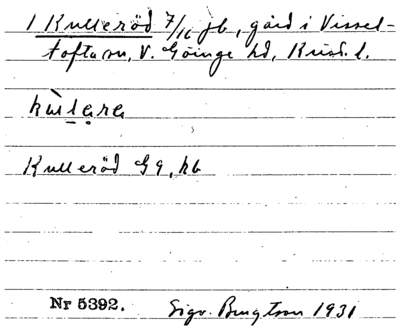 1 Kulleröd 7/16 jb, gård i Vissel-
tofta sn, V. Göinge hd, Krist. l.
kùlara
Kulleröd G9, hb
Nr 5392. Sigv. Bengtson 1931